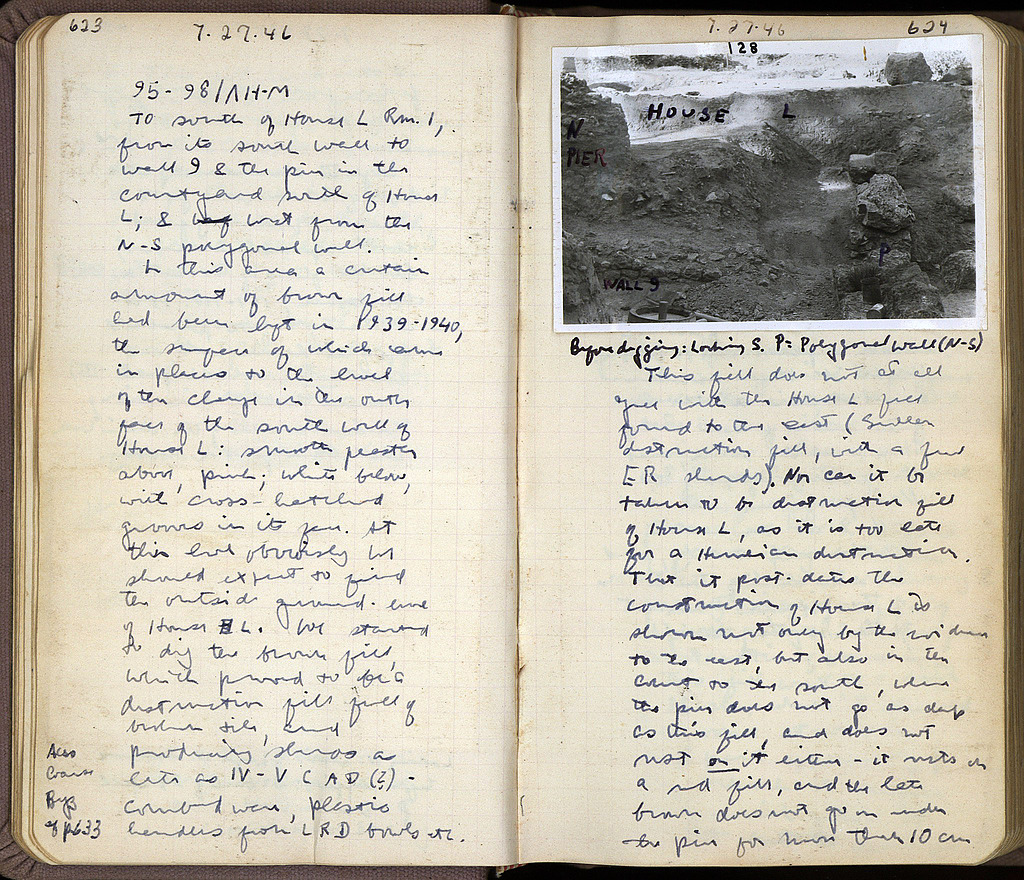 623
7.27.46
95-98/ΛH-M
To south of House L Rm. 1,
from its south wall to
wall 9 & the pier in the
courtyard south of House
L; & west from the
N-S polygonal wall.
In this area a certain
amount of brown fill
had been left in 1939-1940,
the surface of which came
in places to the level
of the change in the outer
face of the south wall of
House L: smooth plaster
above, pink; white below,
with cross-hatched
grooves in its face. At
this level obviously we
should expect to find
the outside ground-level
of House L. We started
to dig the brown fill,
which proved to be a
destruction fill full of
broken tile, and
producing sherds as
late as IV-V C AD (?) -
combed ware, plastic
handles from LRD bowls etc.
Also
Coarse
Byz
cf p633
7.27.46
624
128
HOUSE L
N
PIER
P
WALL 9
Before digging: Looking S. P= Polygonal wall (N-S)
This fill does not at all
agree with the House L fill
found to the east (Sullan
destruction fill, with a few
ER sherds). Nor can it be
taken to be destruction fill
of House L, as it is too late
for a Herulian destruction.
That it post-dates the
construction of House L is
shown not only by the evidence
to the east, but also in the
court to the south, where
the pier does not go as deep
as this fill, and does not
rest on it either - it rests on
a red fill, and the late
brown does not go in under
the pier for more than 10 cm